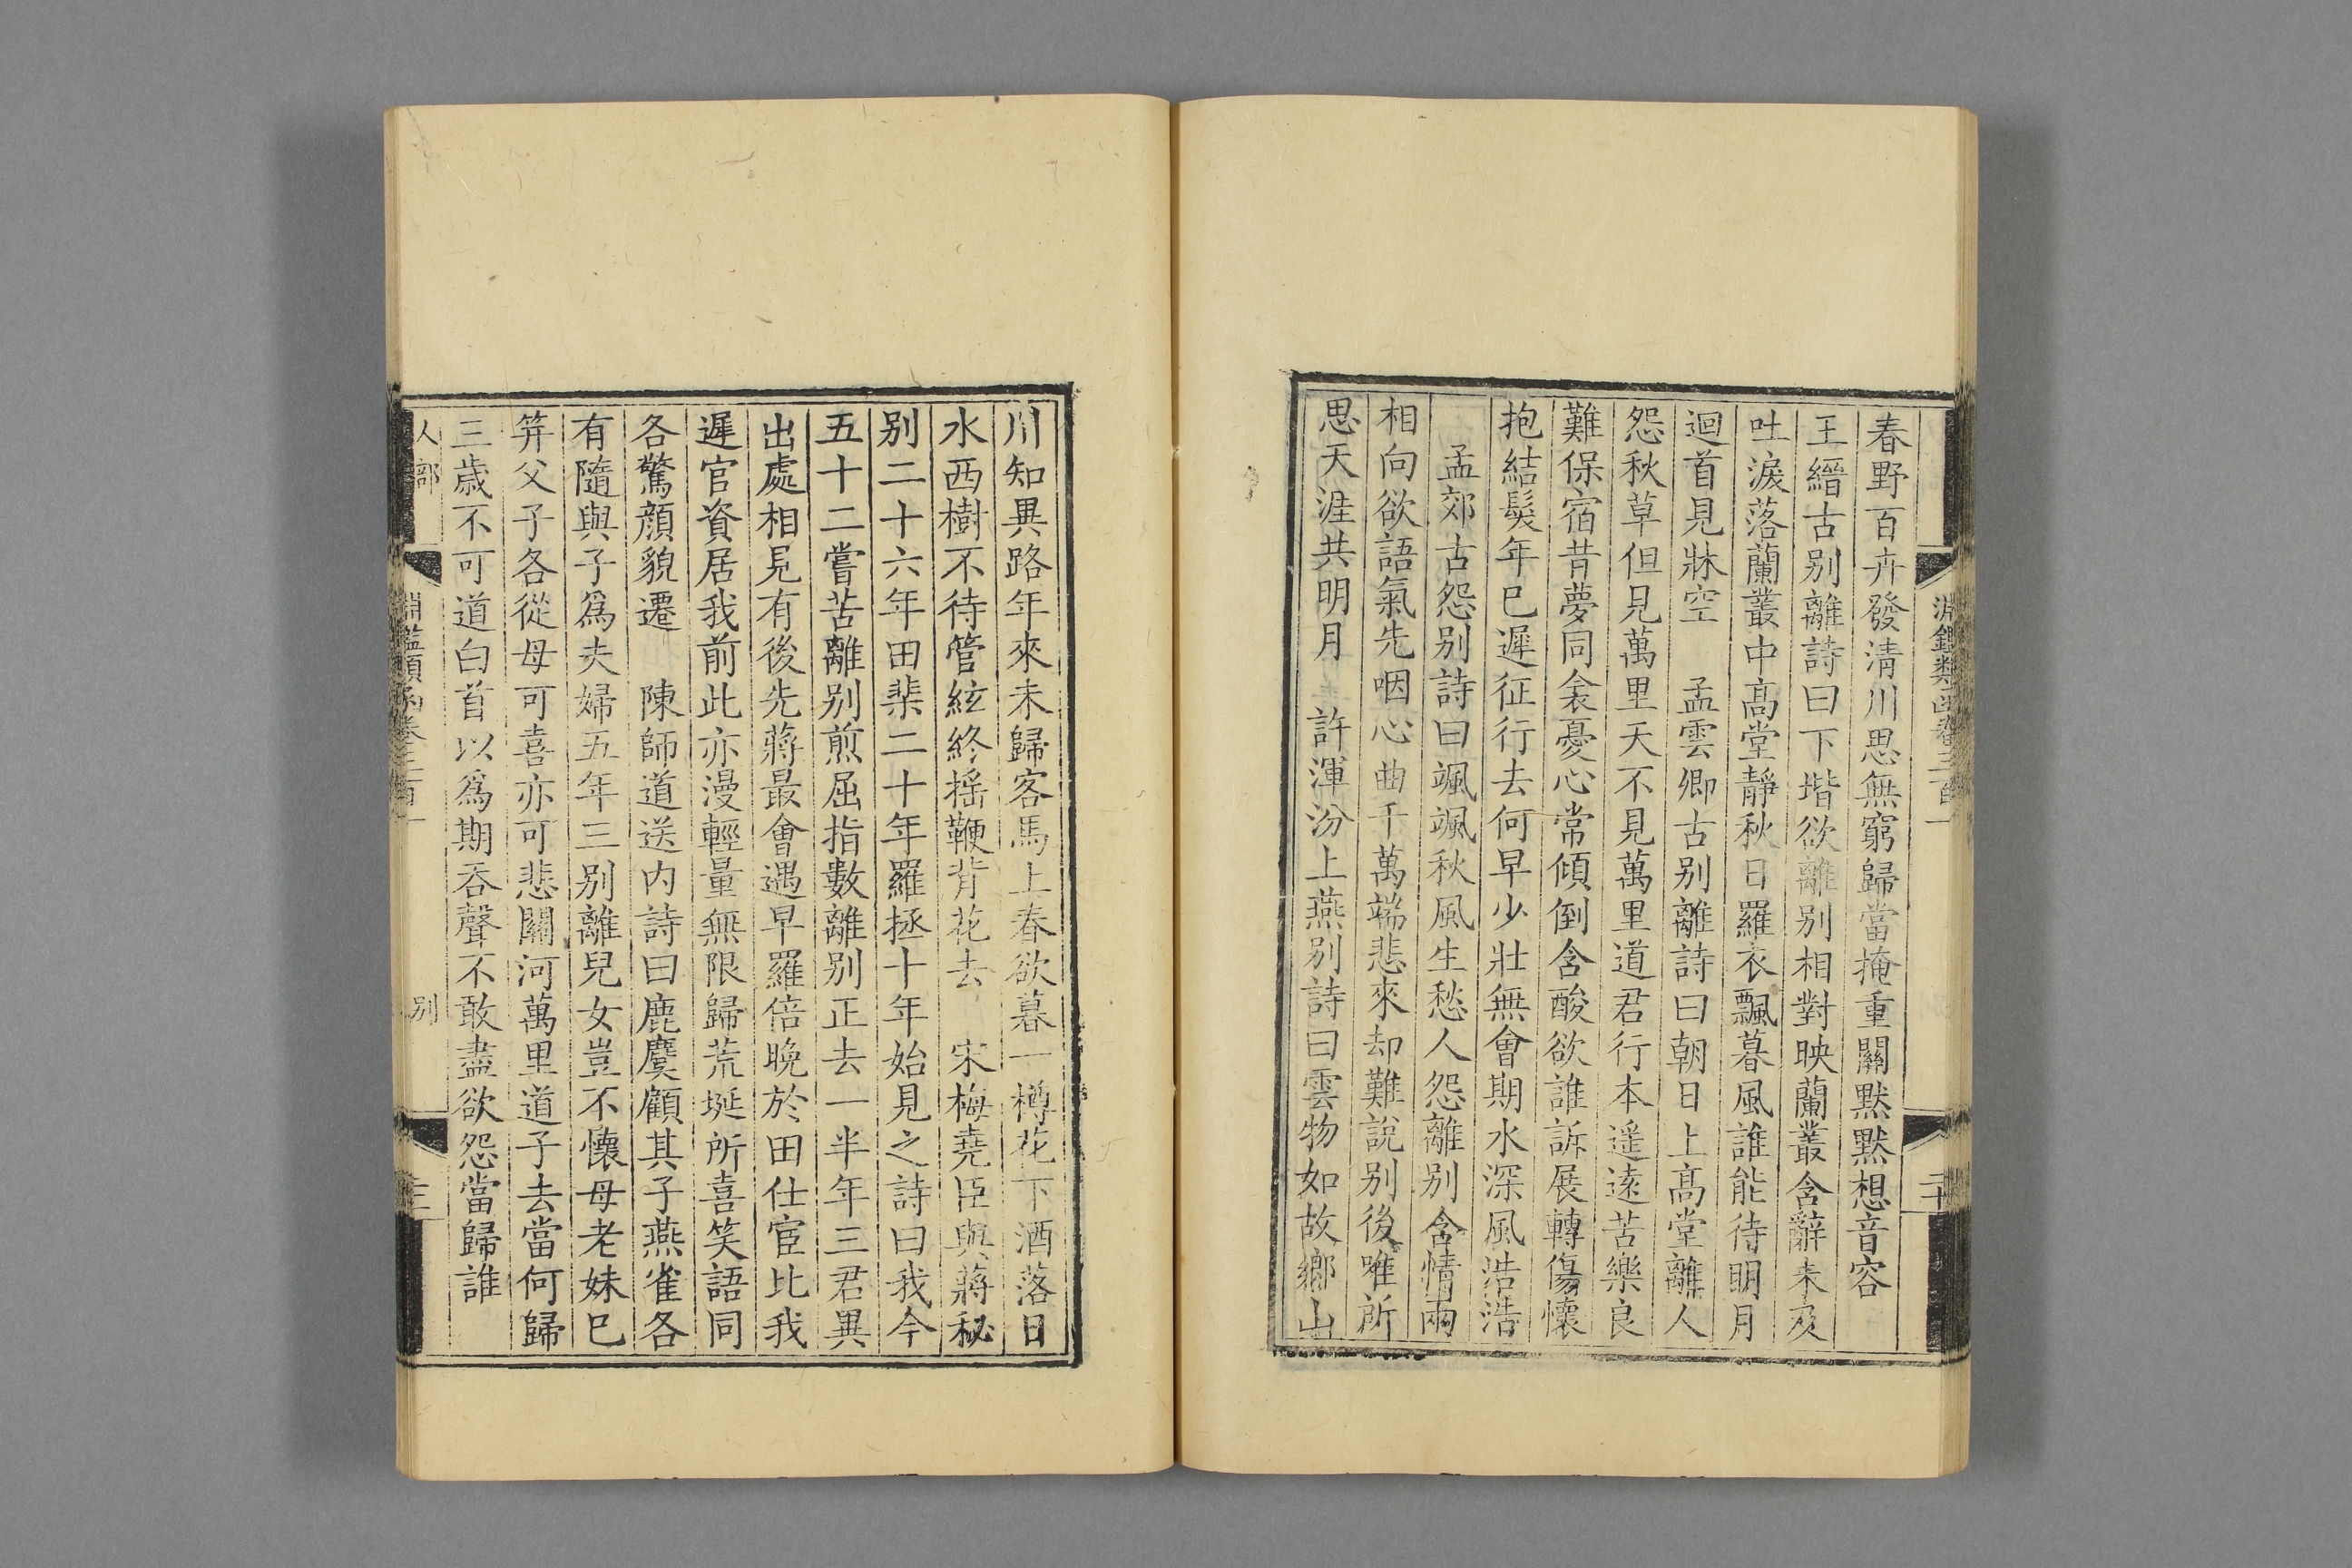 淵鑑類函卷三百一
二十
春野百卉發清川思無窮歸當掩重關默默想音容
王縉古别離詩曰下堦欲離别相對映蘭叢含辭未及
吐淚落蘭叢中高堂靜秋日羅衣飄暮風誰能待明月
迴首見牀空　孟雲卿古别離詩曰朝日上高堂離人
怨秋草但見萬里天不見萬里道君行本遥遠苦樂良
難保宿昔夢同衾憂心常傾倒含酸欲誰訴展轉傷懷
抱結髮年已遲征行去何早少壯無會期水深風浩浩
孟郊古怨别詩曰颯颯秋風生愁人怨離别含情兩
相向欲語氣先咽心曲千萬端悲來却難說别後唯所
思天涯共明月　許渾汾上燕别詩曰雲物如故鄉山
川知異路年來未歸客馬上春欲暮一樽花下酒落日
水西樹不待管絃終摇鞭背花去　宋梅堯臣與蔣秘
别二十六年田棐二十年羅拯十年始見之詩曰我今
五十二嘗苦離别煎屈指數離别正去一半年三君異
出處相見有後先蔣最會遇早羅倍晚於田仕宦比我
遲官資居我前此亦漫輕量無限歸荒埏所喜笑語同
各驚顔貌遷　陳師道送内詩曰鹿麌顧其子燕雀各
有隨與子爲夫婦五年三别離兒女豈不懷母老妹已
笄父子各從母可喜亦可悲關河萬里道子去當何歸
三歲不可道白首以爲期吞聲不敢盡欲怨當歸誰
人部
淵鑑類函卷三百一
别